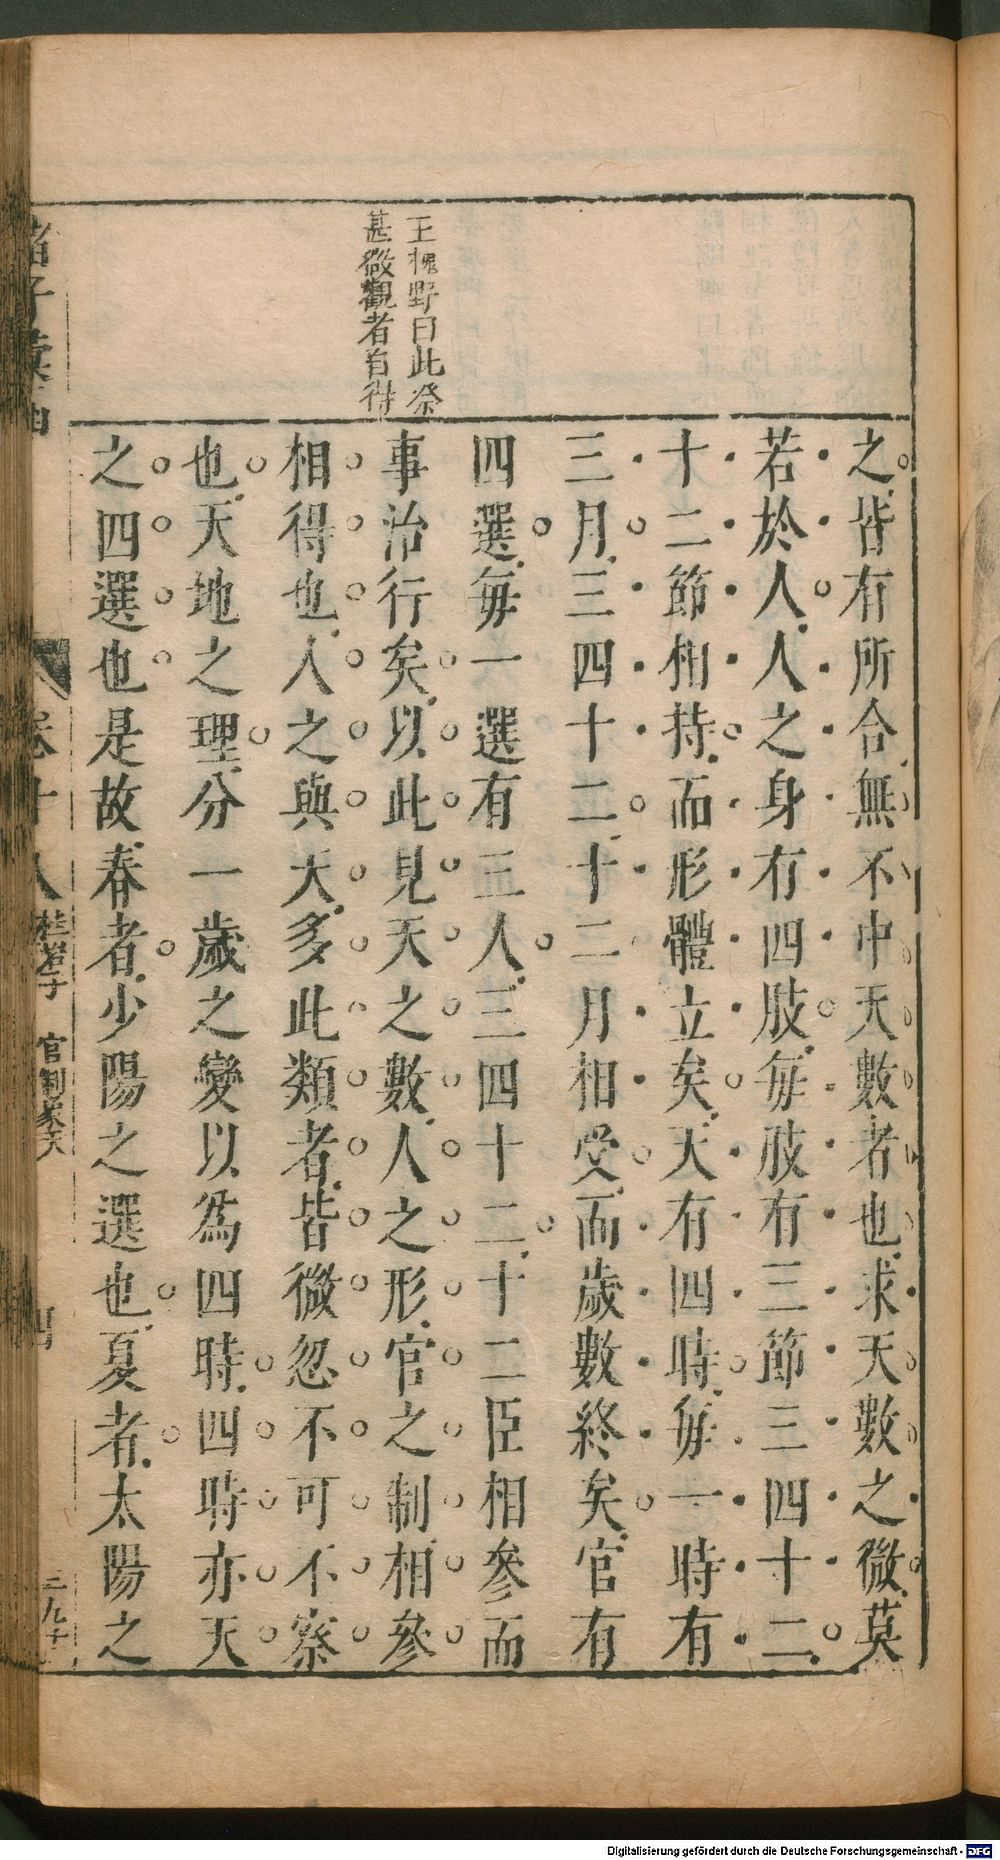 王槐野曰此祭
甚微觀者自得
之皆有所合無不中天數者也求天數之微莫
若於人人之身有四肢每肢有三節三四十二
十二節相持而形體立矣天有四時每一時有
三月三四十二十二月相受而歲數終矣官有
四選每一選有三人三四十二十二臣相參而
事治行矣以此見天之數人之形官之制相參
相得也人之與天多此類者皆微忽不可不察
也天地之理分一歲之變以為四時四時亦天
之四選也是故春者少陽之選也夏者太陽之
諸子彙函
卷十八
桂岩子
官制象天
四
Digitalisierung gefördert durch die Deutsche Forschungsgemeinschaft - DFG